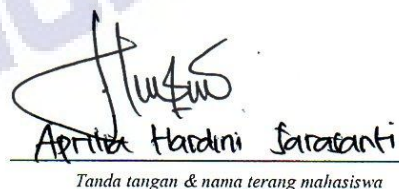 Aprilia Hardini Sarasanti
Tanda tangan & nama terang mahasiswa